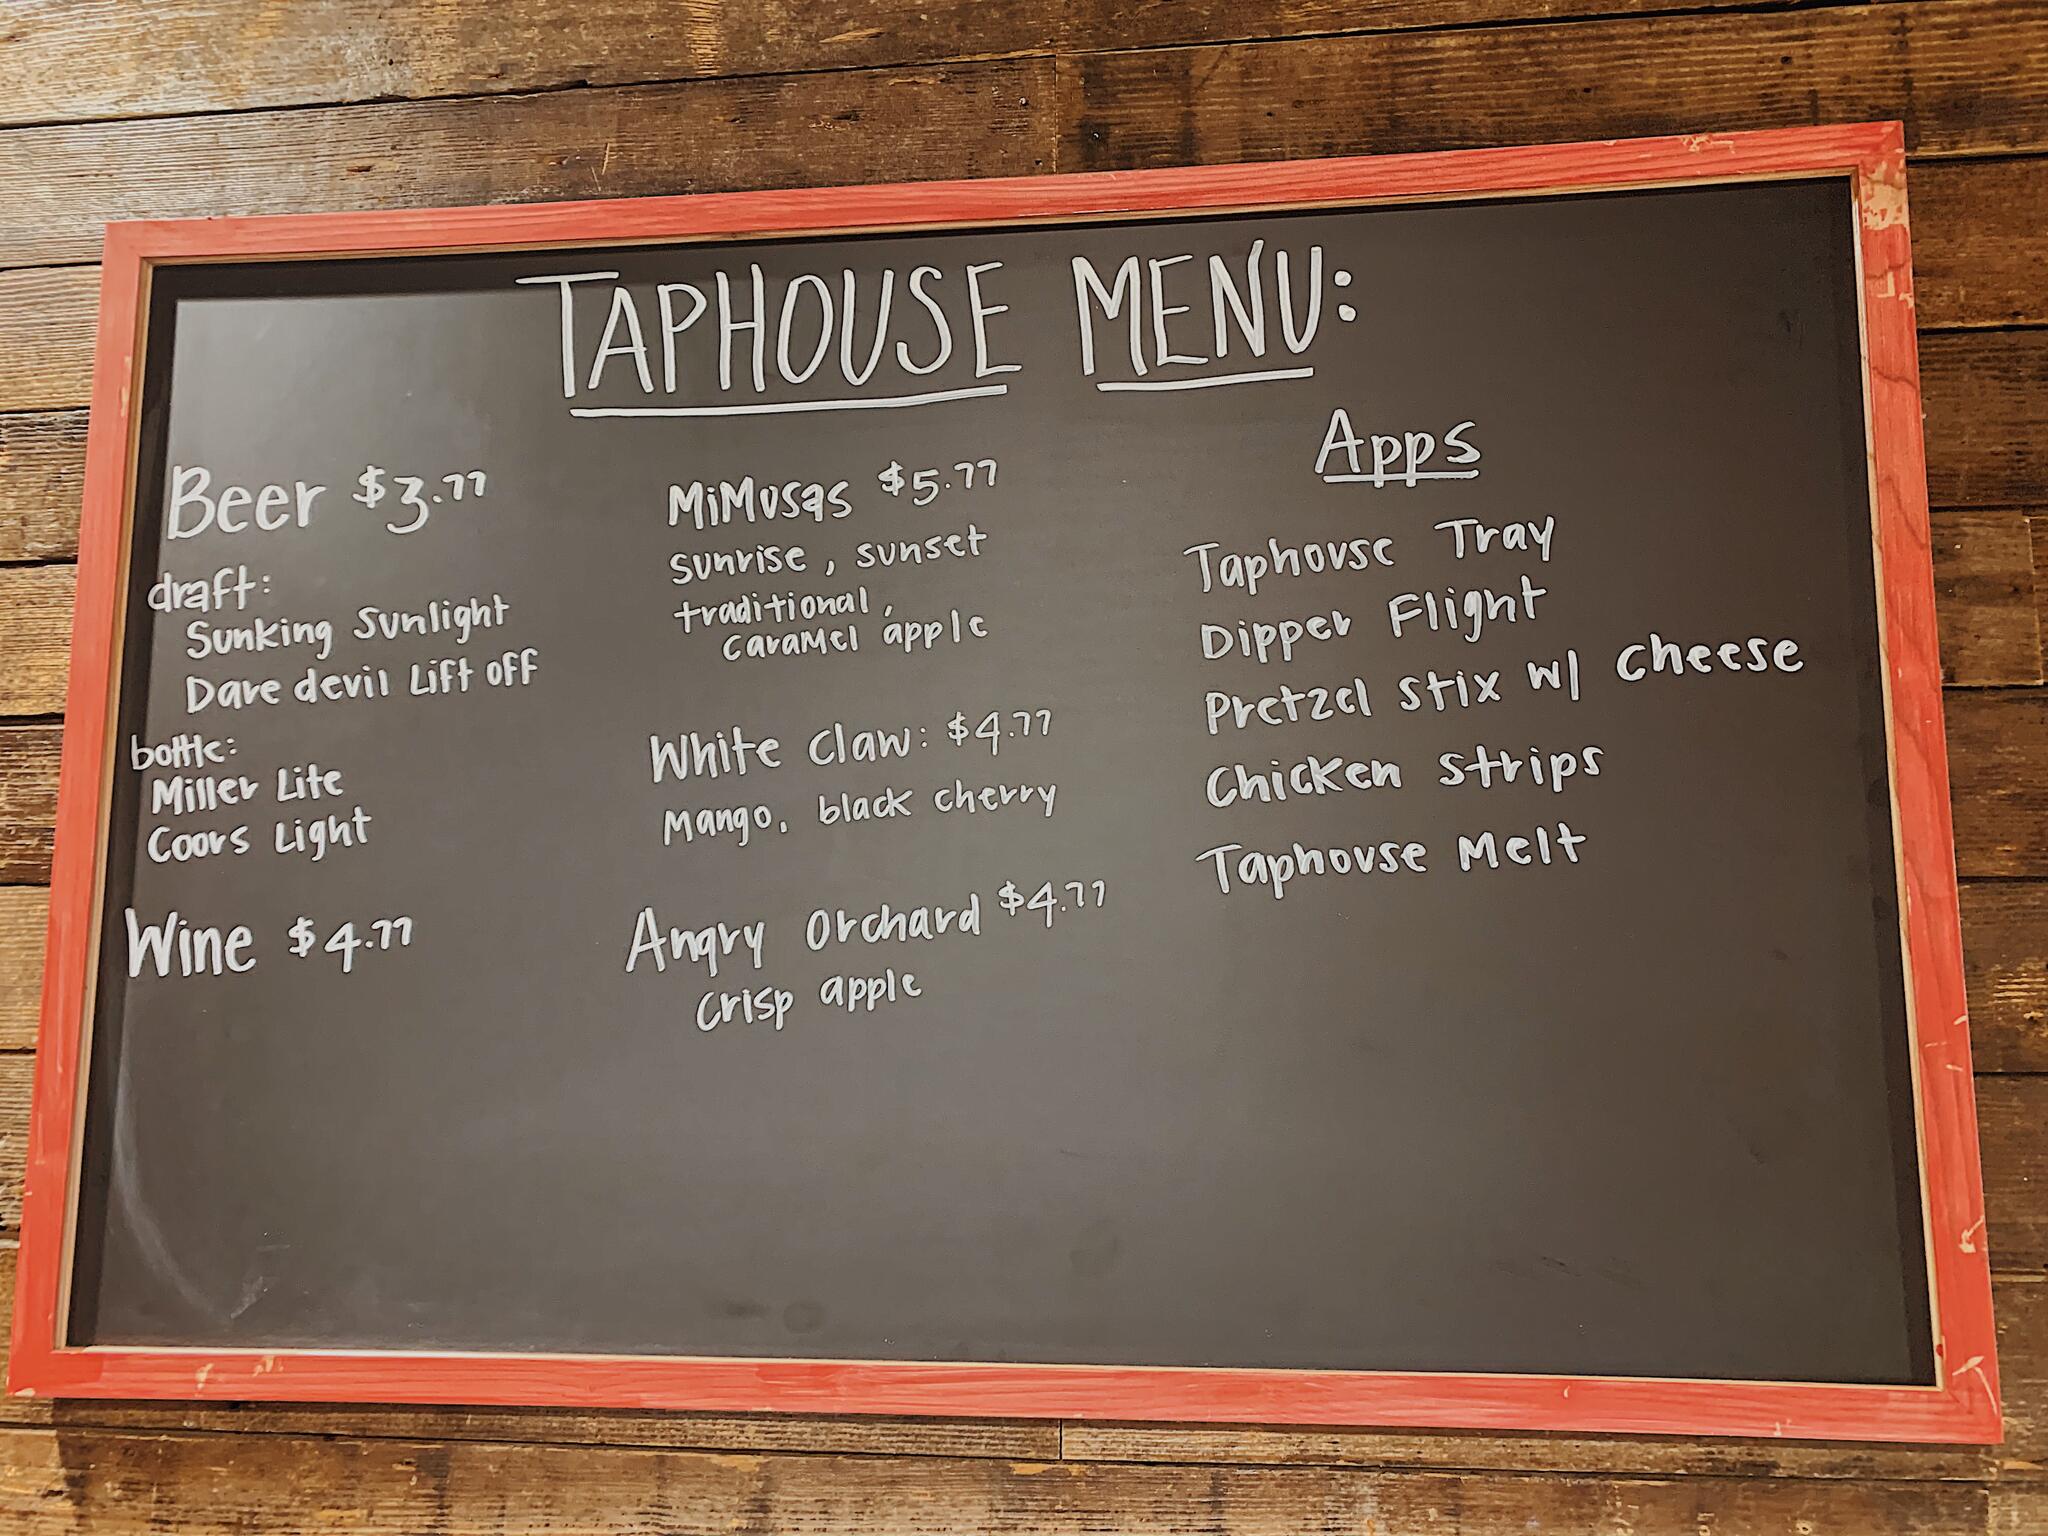 TAPHOUSE MENU:
Beer $3.77
draft:
Sunking Sunlight
Dare devil Lift off
bottle:
Miller Lite
Coors Light
Wine $4.77
MiMosas $5.77
sunrise, sunset
traditional,
caraMel apple
White Claw: $4.77
Mango, black cherry
Angry Orchard $4.77
crisp apple
Apps
Taphouse Tray
Dipper Flight
Pretzel Stix w/ cheese
Chicken Strips
Taphouse Melt